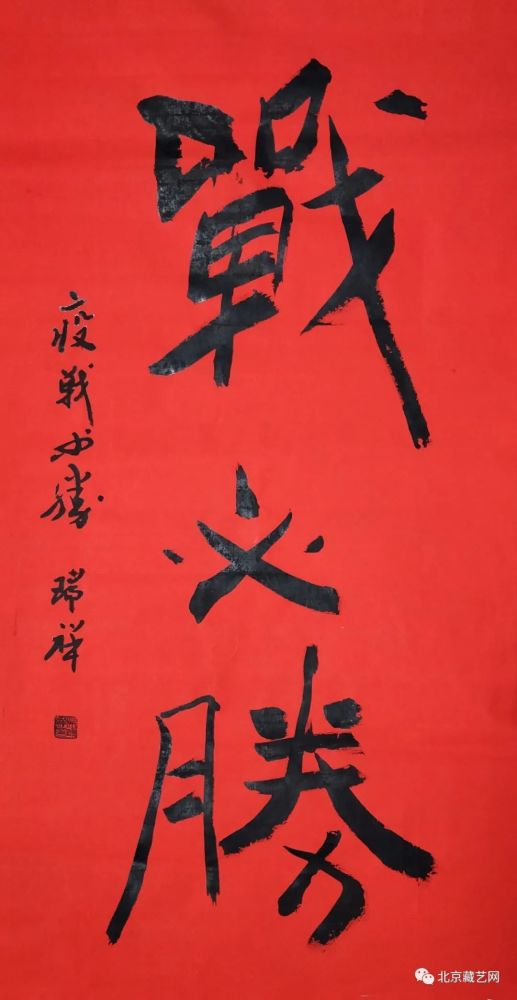 戰必勝
疫戰必勝 瑞祥
北京藏艺网